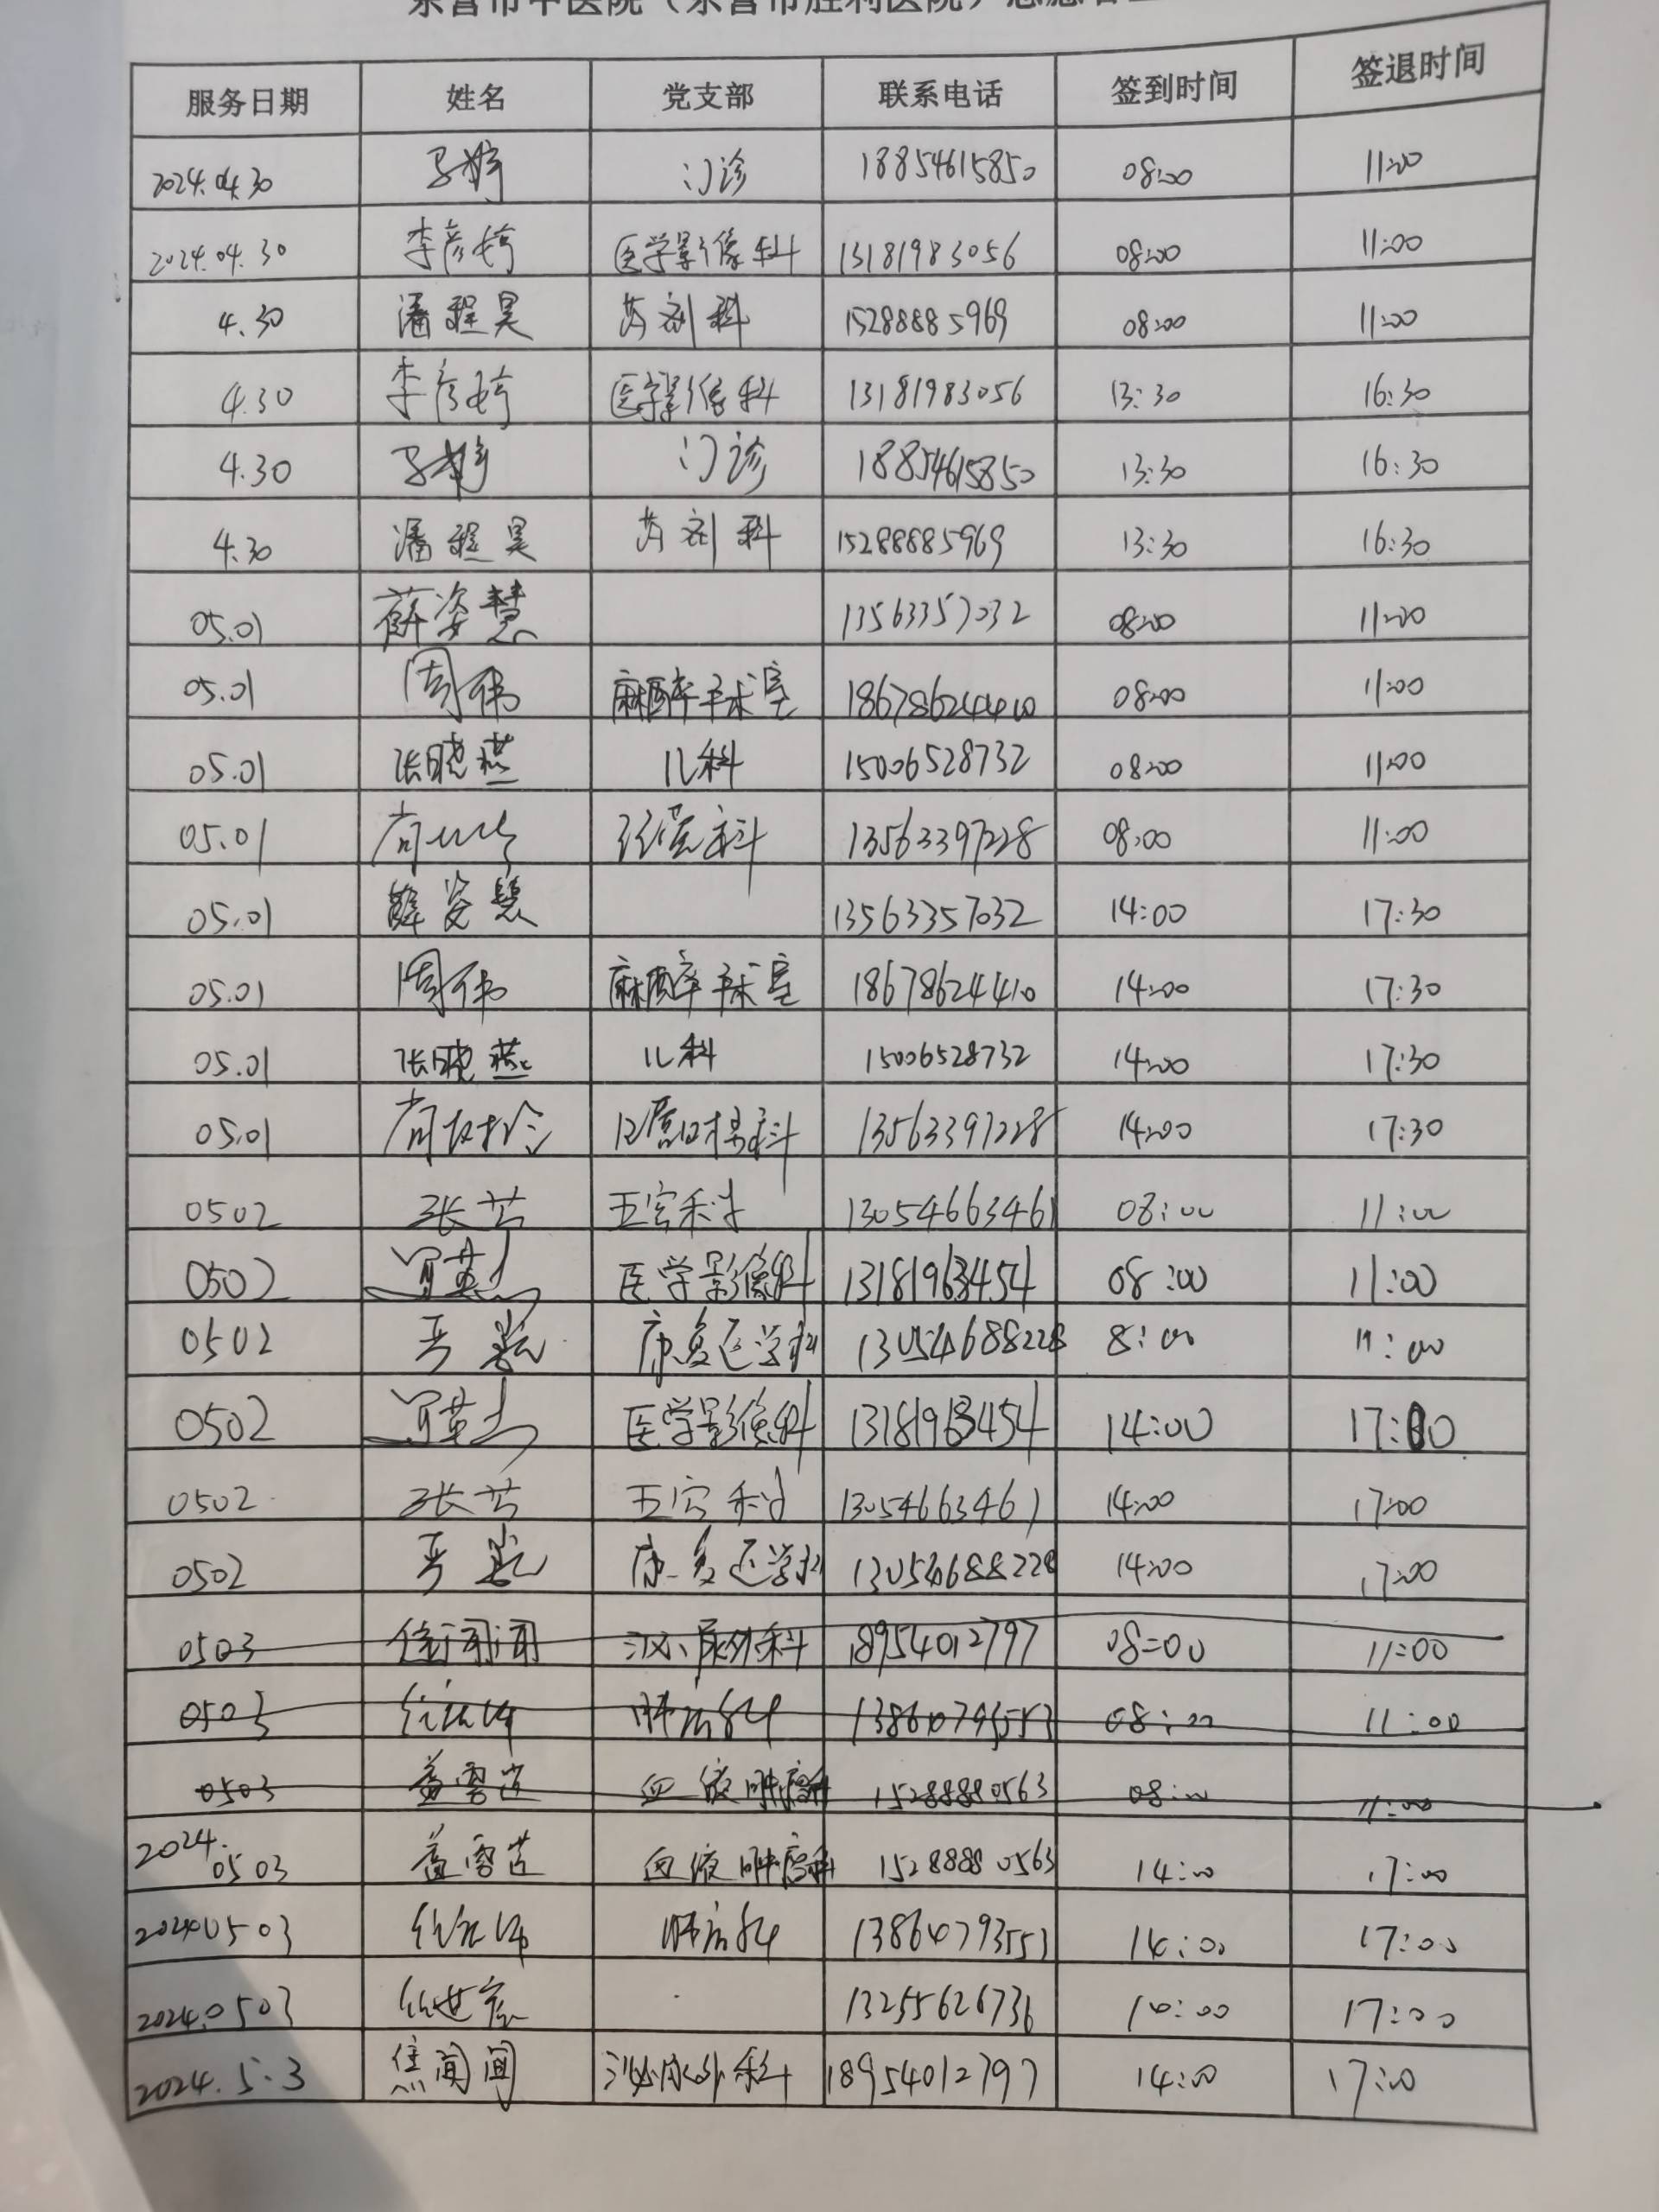 服务日期 姓名 党支部 联系电话 签到时间 签退时间
2024.04.30 门诊 18854615850 08:00 11:00
2024.04.30 李彦婷 医学影像科 13181983056 08:00 11:00
4.30 潘程昊 药剂科 15288885969 08:00 11:00
4.30 李彦婷 医学影像科 13181983056 13:30 16:30
4.30 门诊 18854615850 13:30 16:30
4.30 潘程昊 药剂科 15288885969 13:30 16:30
05.01 薛姿慧 13563357032 08:00 11:00
05.01 周伟 麻醉手术室 18678624410 08:00 11:00
05.01 张晓燕 儿科 15006528732 08:00 11:00
05.01 13563397228 08:00 11:00
05.01 薛姿慧 13563357032 14:00 17:30
05.01 周伟 麻醉手术室 18678624410 14:00 17:30
05.01 张晓燕 儿科 15006528732 14:00 17:30
05.01 13563397228 14:00 17:30
0502 张芸 五官科 13054663461 08:00 11:00
0502 医学影像科 13181963454 08:00 11:00
0502 康复医学科 13054688228 8:00 11:00
0502 医学影像科 13181963454 14:00 17:00
0502 张芸 五官科 13054663461 14:00 17:00
0502 康复医学科 13054688228 14:00 17:00
0503 泌尿外科 18954012797 08:00 11:00
0503 13864793553 08:00 11:00
0503 盖雪芷 血液肿瘤科 15288880563 08:00 11:00
2024.
0503 盖雪芷 血液肿瘤科 15288880563 14:00 17:00
2024.0503 13864793553 14:00 17:00
2024.0503 13255626736 14:00 17:00
2024.5.3 焦闻闻 泌尿外科 18954012797 14:00 17:00